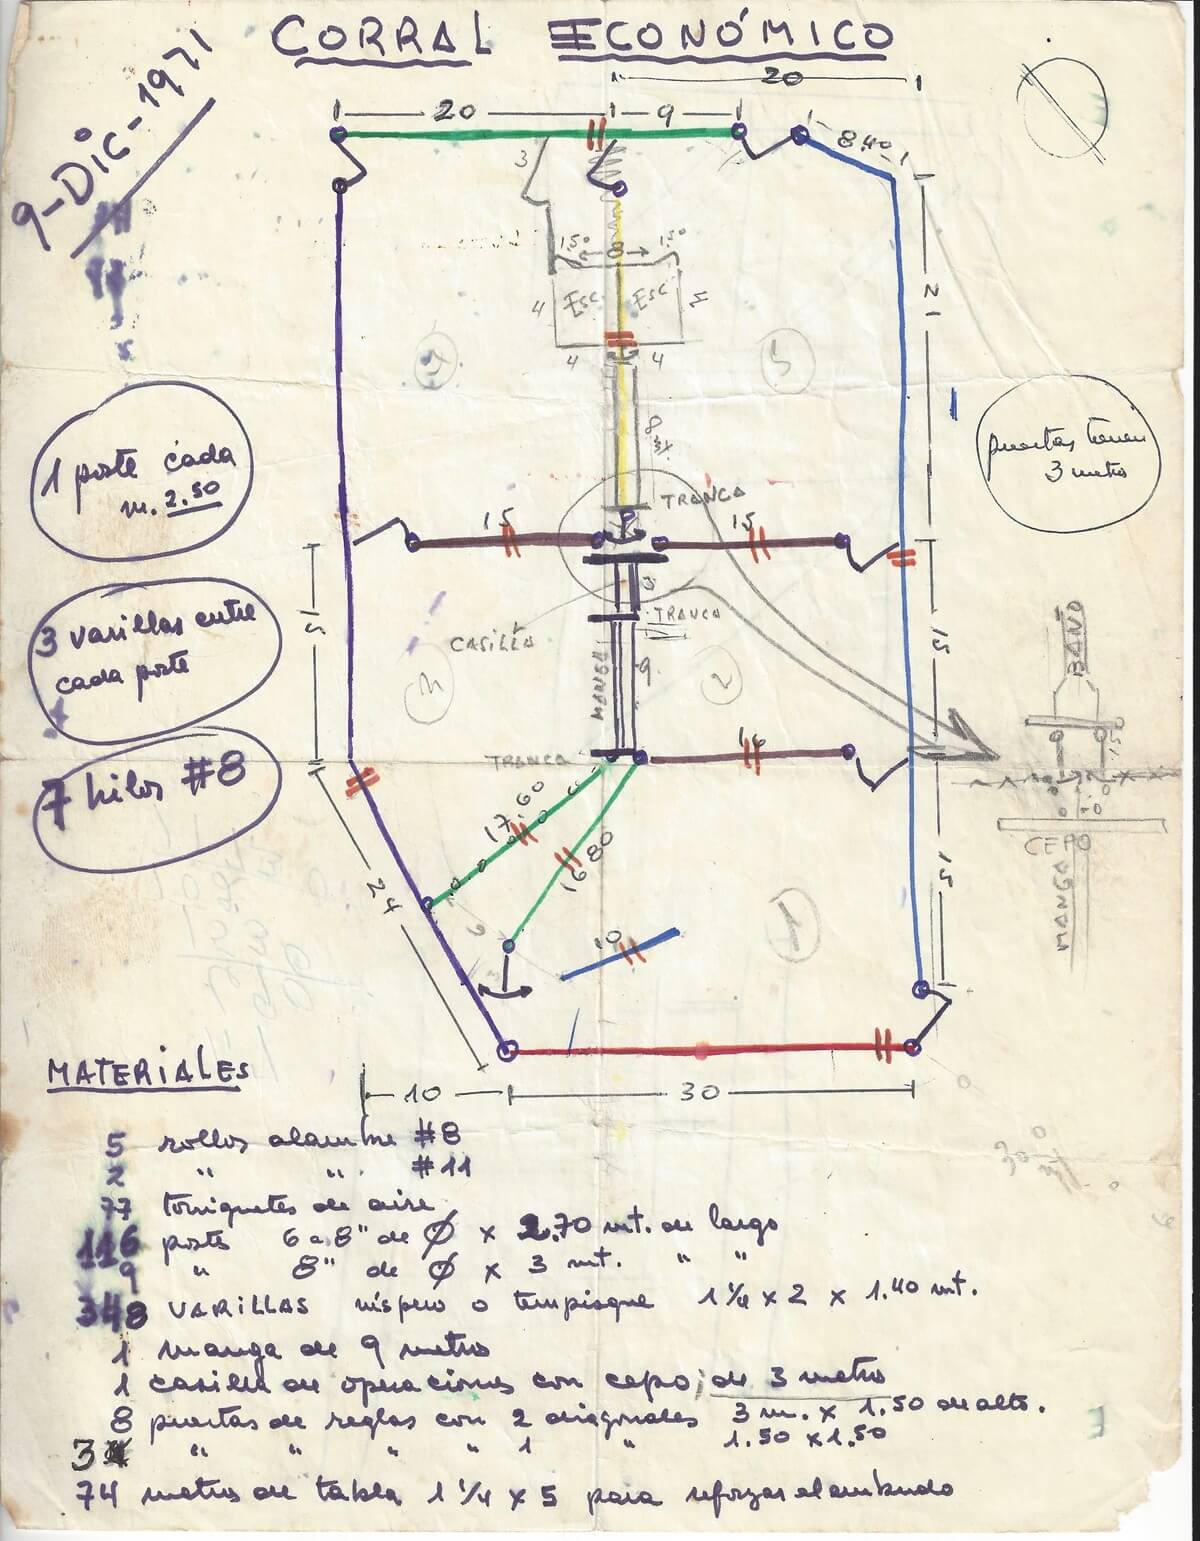 CORRAL ECONÓMICO
9-Dic-1971
20
20
9
8.40
3
1.50
8
1.50
21
4
Esc
Esc
4
4
4
5
8 mt
1 poste cada
m. 2.50
puertas tienen
3 metro
TRANCA
15
15
3 varillas entre
cada poste
15
3
TRANCA
CASILLA
MANGA
9
2
15
BAÑO
1.50
TRANCA
16
7 hilos #8
17.60
16.80
24
10
1
15
CEPO
MANGA
10
30
MATERIALES
5 rollos alambre #8
2 " " #11
77 torniquetes de aire
116 postes 6 a 8" de Ø x 2.70 mt. de largo
9 " 8" de Ø x 3 mt. " "
348 VARILLAS níspero o tempisque 1 1/4 x 2 x 1.40 mt.
1 manga de 9 metros
1 casilla de operaciones con cepo, de 3 metros
8 puertas de reglas con 2 diagonales 3 m. x 1.50 de alto.
3 " " " " 1 " 1.50 x 1.50
74 metros de tabla 1 1/4 x 5 para reforzar alambrado